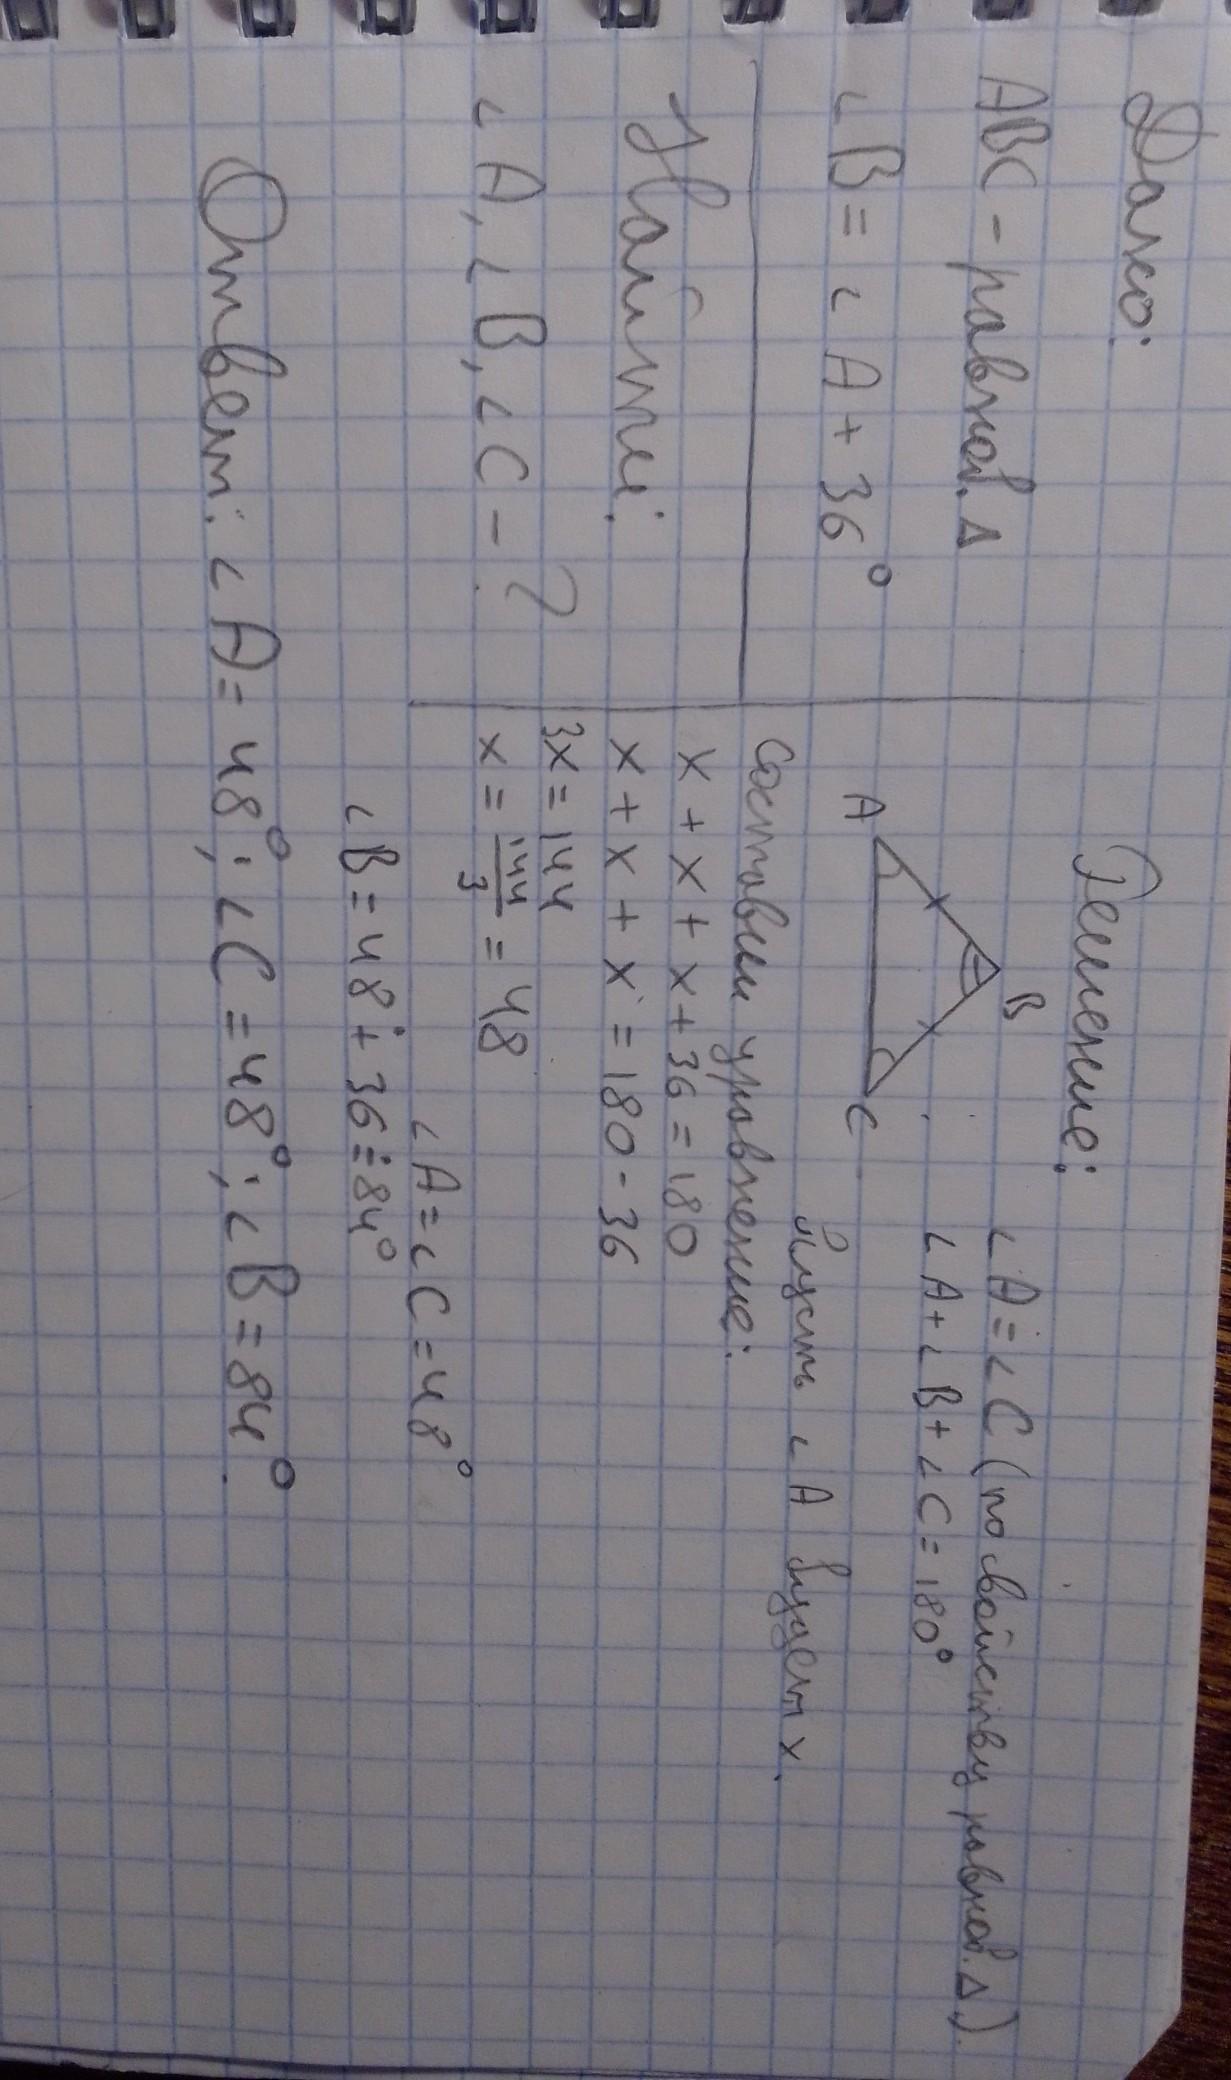 Дано:
ABC - равноб. Δ
∠B = ∠A + 36°
Найти:
∠A, ∠B, ∠C - ?
Решение:
A
B
C
∠A = ∠C (по свойству равноб. Δ).
∠A + ∠B + ∠C = 180°
Пусть ∠A будет x.
Составим уравнение:
x + x + x + 36 = 180
x + x + x = 180 - 36
3x = 144
x = 144/3 = 48
∠A = ∠C = 48°
∠B = 48° + 36° = 84°
Ответ: ∠A = 48°; ∠C = 48°; ∠B = 84°.